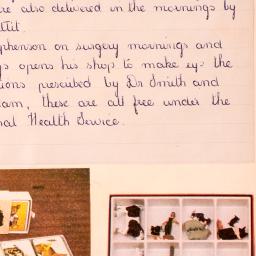 re also delivered in the mornings by
phenson on surgery mornings and
ys opens his shop to make up the
ions prescibed by Dr Smith and
am, these are all free under the
nal Health Service.